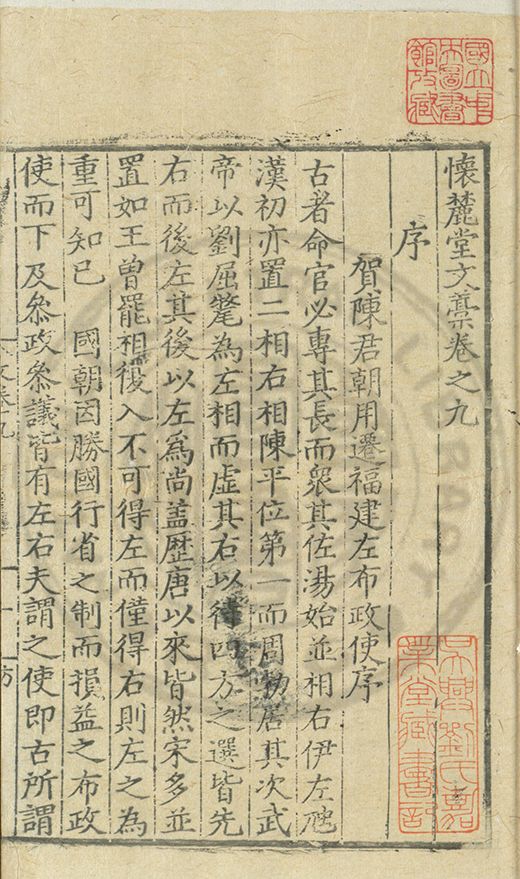 懷麓堂文藁卷之九
序
賀陳君朝用遷福建左布政使序
古者命官必專其長而衆其佐湯始並相右伊左虺
漢初亦置二相右相陳平位第一而周勃居其次武
帝以劉屈氂為左相而虛其右以待四方之選皆先
右而後左其後以左爲尚盖歷唐以來皆然宋多並
置如王曾罷相復入不可得左而僅得右則左之為
重可知已 國朝因勝國行省之制而損益之布政
使而下及叅政叅議皆有左右夫謂之使即古所謂
文卷九
一
方
國立中央圖書館攷藏
吳興劉氏嘉業堂藏書印